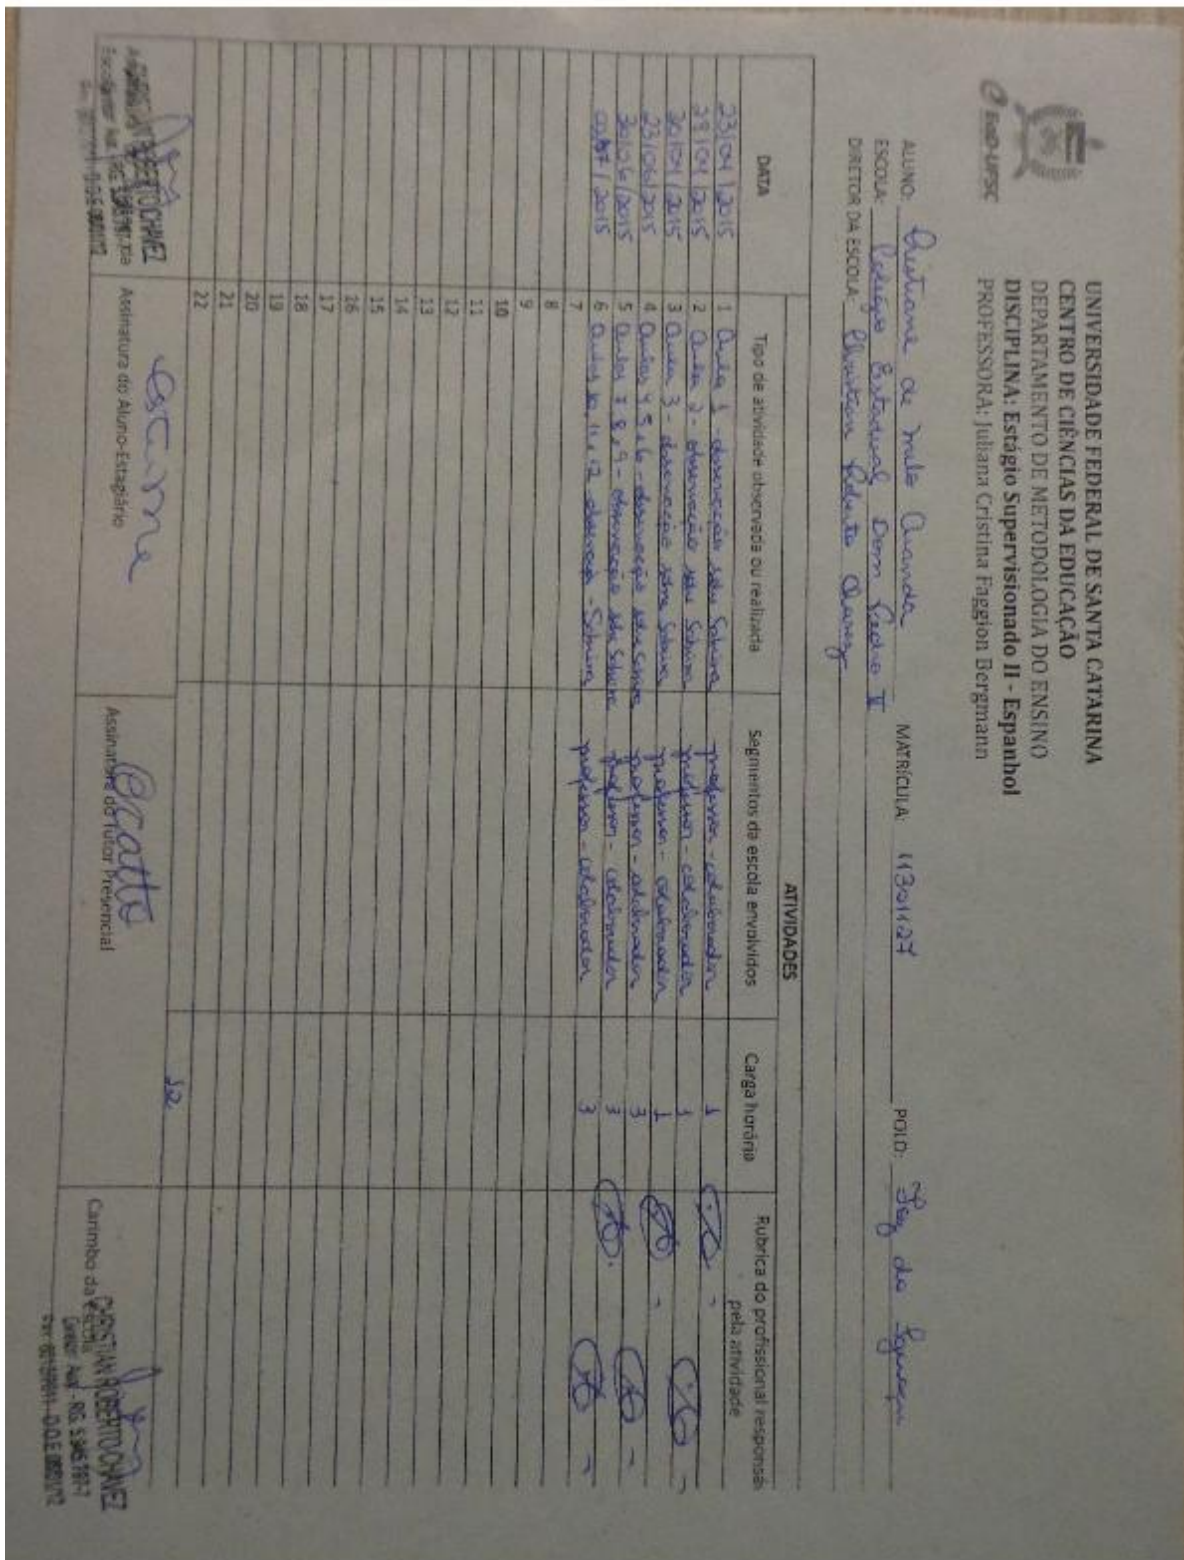 EaD-UFSC
UNIVERSIDADE FEDERAL DE SANTA CATARINA
CENTRO DE CIÊNCIAS DA EDUCAÇÃO
DEPARTAMENTO DE METODOLOGIA DO ENSINO
DISCIPLINA: Estágio Supervisionado II - Espanhol
PROFESSORA: Juliana Cristina Faggion Bergmann
ALUNO: Cristiane de Melo Aranda MATRÍCULA: 11301127 POLO: Foz do Iguaçu
ESCOLA: Colégio Estadual Dom Pedro II
DIRETOR DA ESCOLA: Christian Roberto Chavez
ATIVIDADES
DATA Tipo de atividade observada ou realizada Segmentos da escola envolvidos Carga horária Rubrica do profissional responsáv
pela atividade
23/04/2015 1 Aula 1 - observação professor - colaborador 1
29/04/2015 2 Aula 2 - observação professor - colaborador 1
30/04/2015 3 Aula 3 - observação professor - colaborador 1
23/06/2015 4 Aulas 4 5 e 6 - observação professor - colaborador 3
30/06/2015 5 Aulas 7 8 e 9 - observação professor - colaborador 3
/2015 6 Aulas 10, 11 e 12 professor - colaborador 3
7
8
9
10
11
12
13
14
15
16
17
18
19
20
21
22
12
Assinatura do Aluno-Estagiário
Assinatura do Tutor Presencial
Carimbo da Escola
CHRISTIAN ROBERTO CHAVEZ